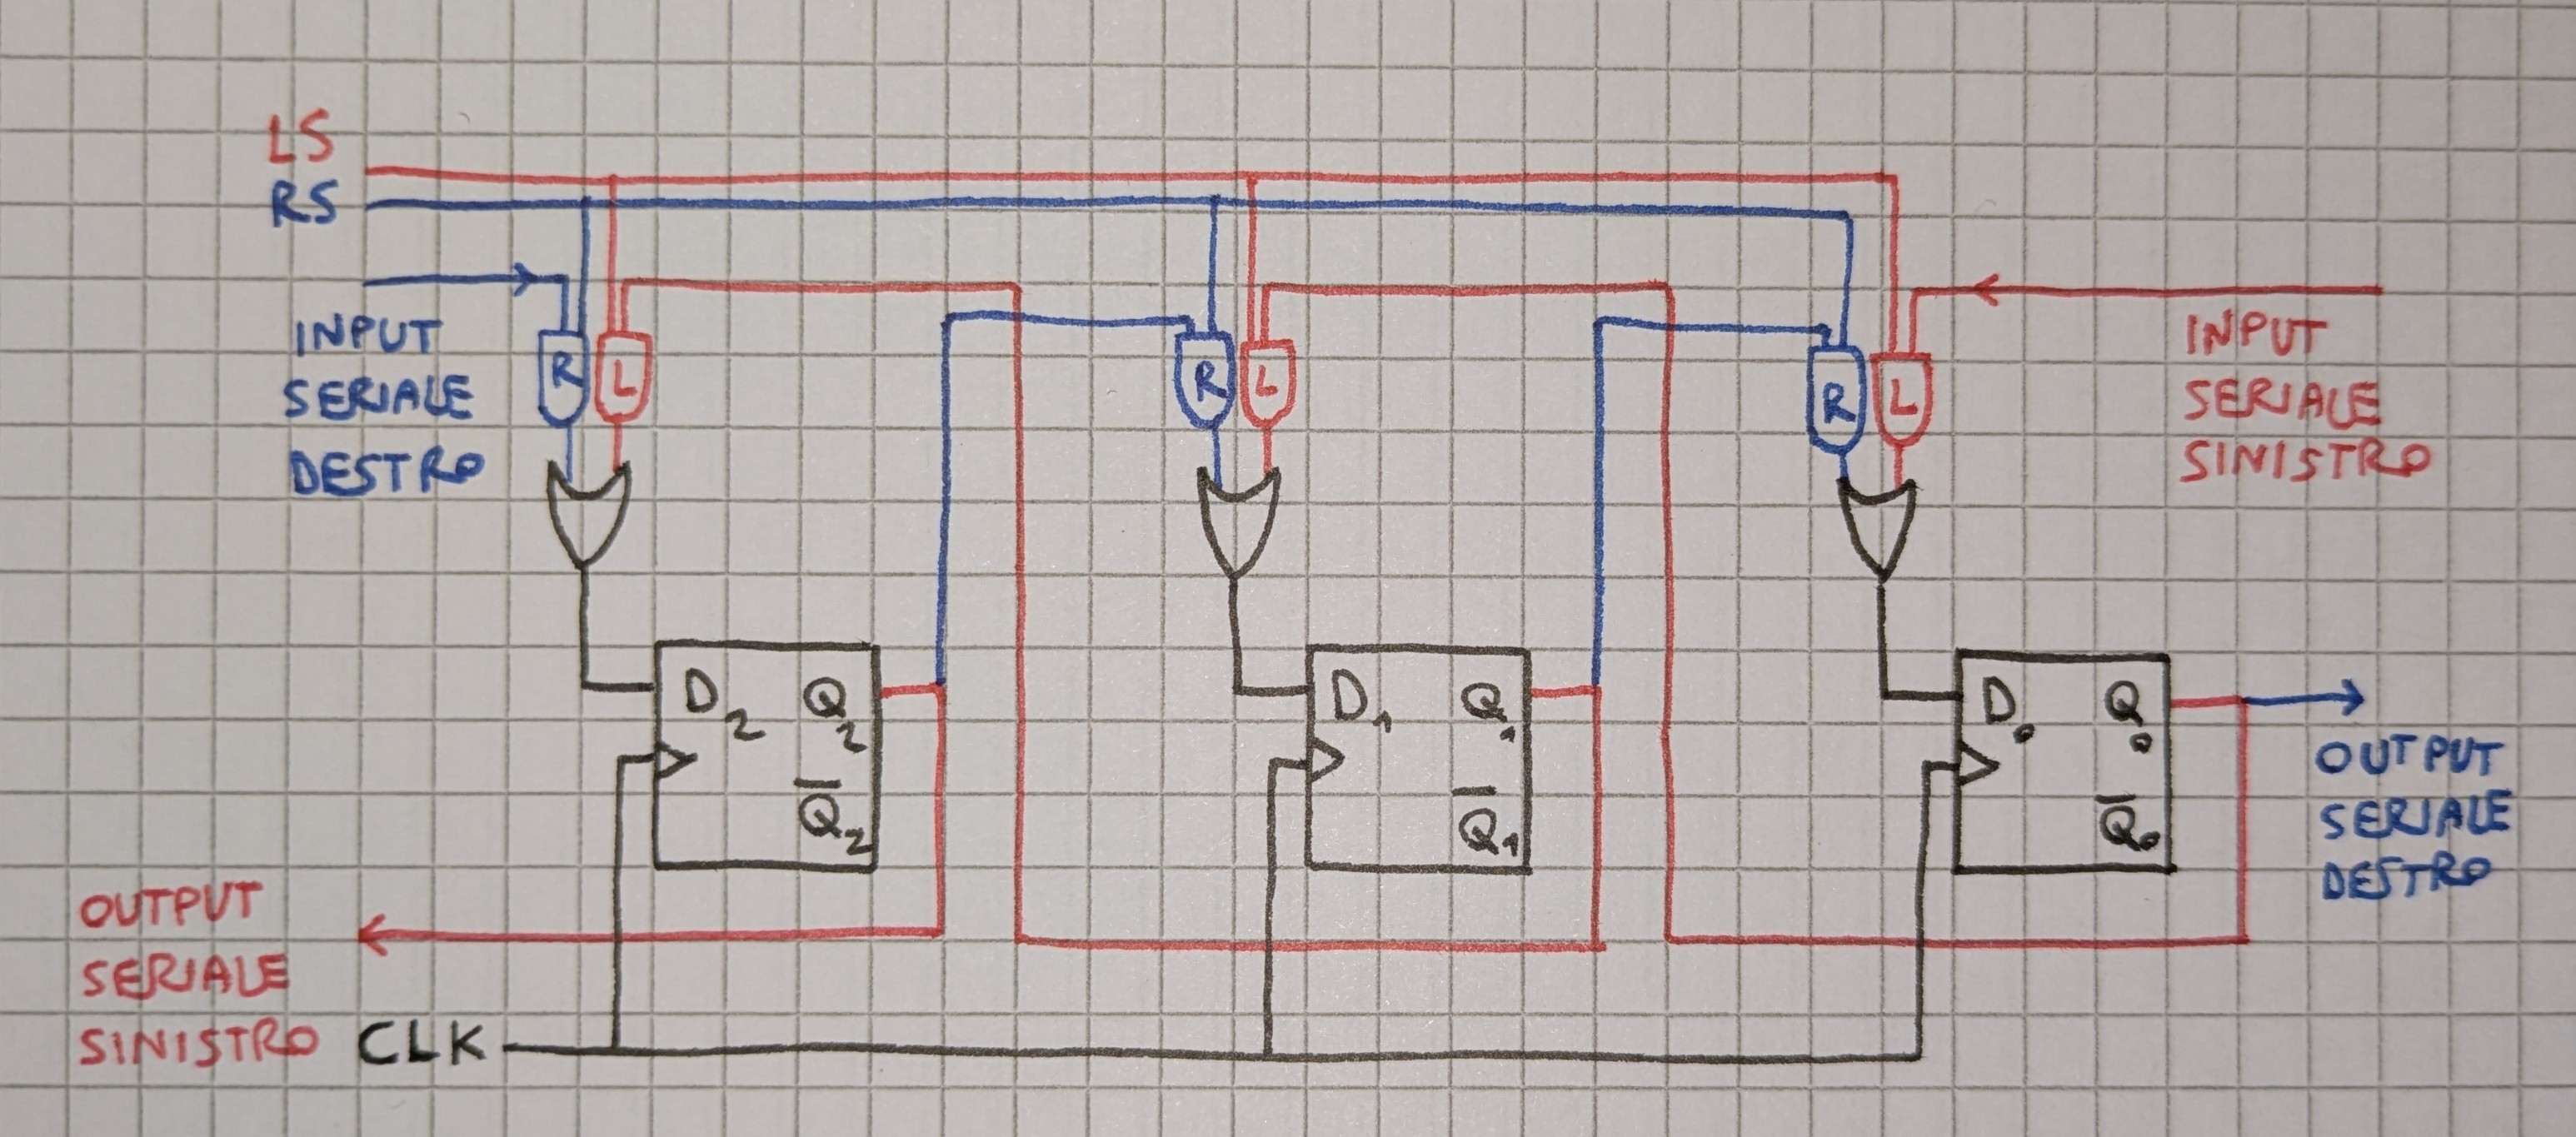 LS
RS
INPUT
SERIALE
DESTRO
R
L
R
L
R
L
INPUT
SERIALE
SINISTRO
D2 Q2
Q̅2
D1 Q1
Q̅1
D0 Q0
Q̅0
OUTPUT
SERIALE
DESTRO
OUTPUT
SERIALE
SINISTRO
CLK